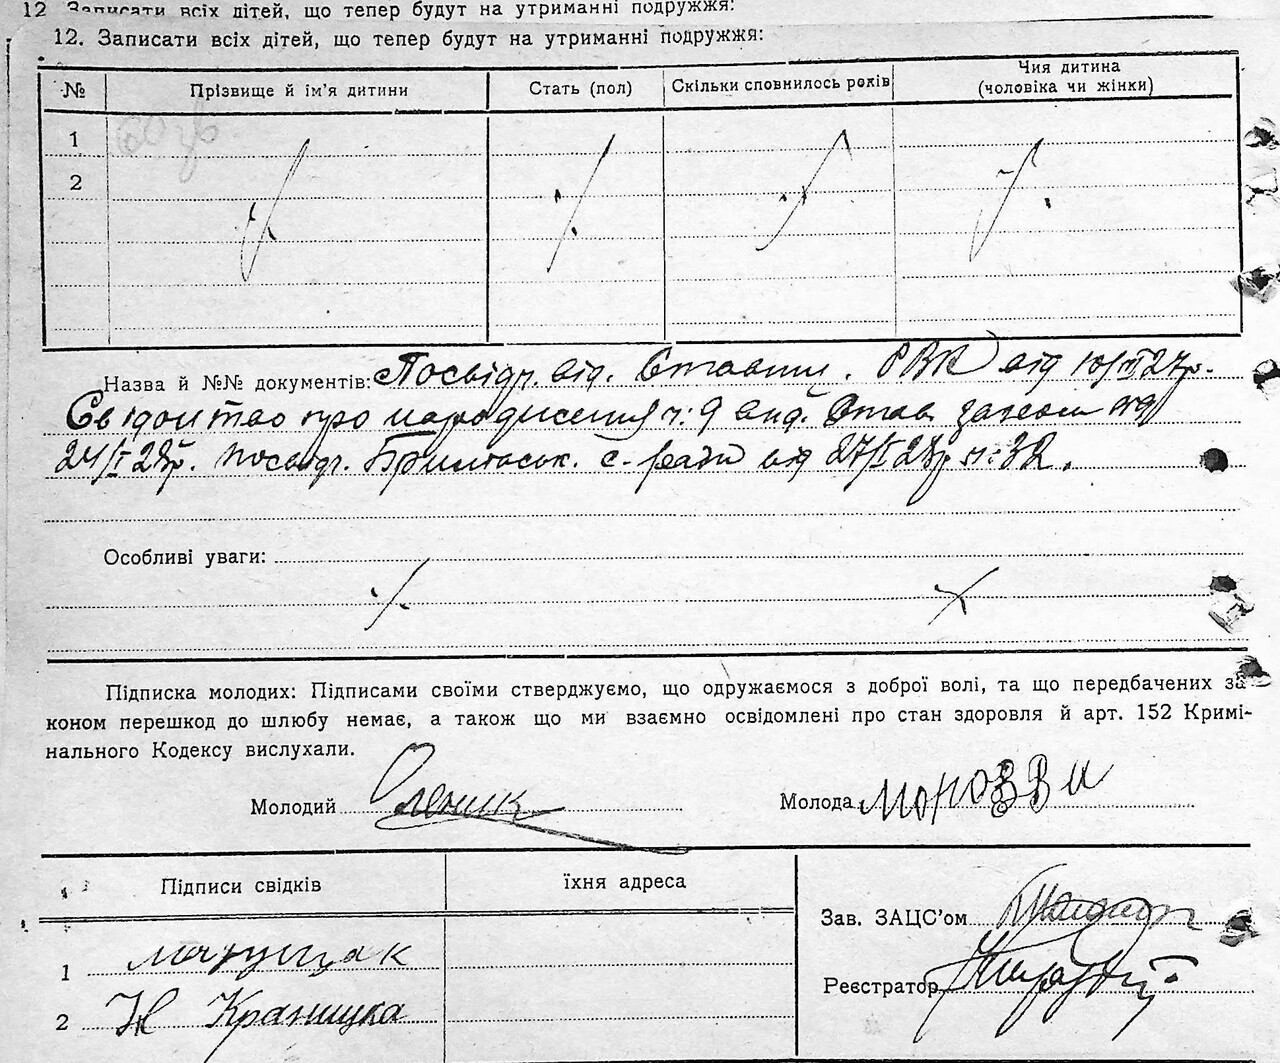 12 Записати всіх дітей, що тепер будут на утриманні подружжя:
12. Записати всіх дітей, що тепер будут на утриманні подружжя:
№ Прізвище й ім'я дитини Стать (пол) Скільки сповнилось років Чия дитина
(чоловіка чи жінки)
1
2
Назва й №№ документів: Посвідч. від. РВК від 10/III 27р.
Свідоцтво про народження ч: 9 вид. Став.
24/I 28р. посвідч. с-ради від 27/I 28р. ч: 32.
Особливі уваги:
Підписка молодих: Підписами своїми стверджуємо, що одружаємося з доброї волі, та що передбачених за-
коном перешкод до шлюбу немає, а також що ми взаємно освідомлені про стан здоровля й арт. 152 Кримі-
нального Кодексу вислухали.
Молодий Оленик Молода Морозви
Підписи свідків їхня адреса
Зав. ЗАЦС'ом
1 Марущак
Реєстратор
2 Н Краницка